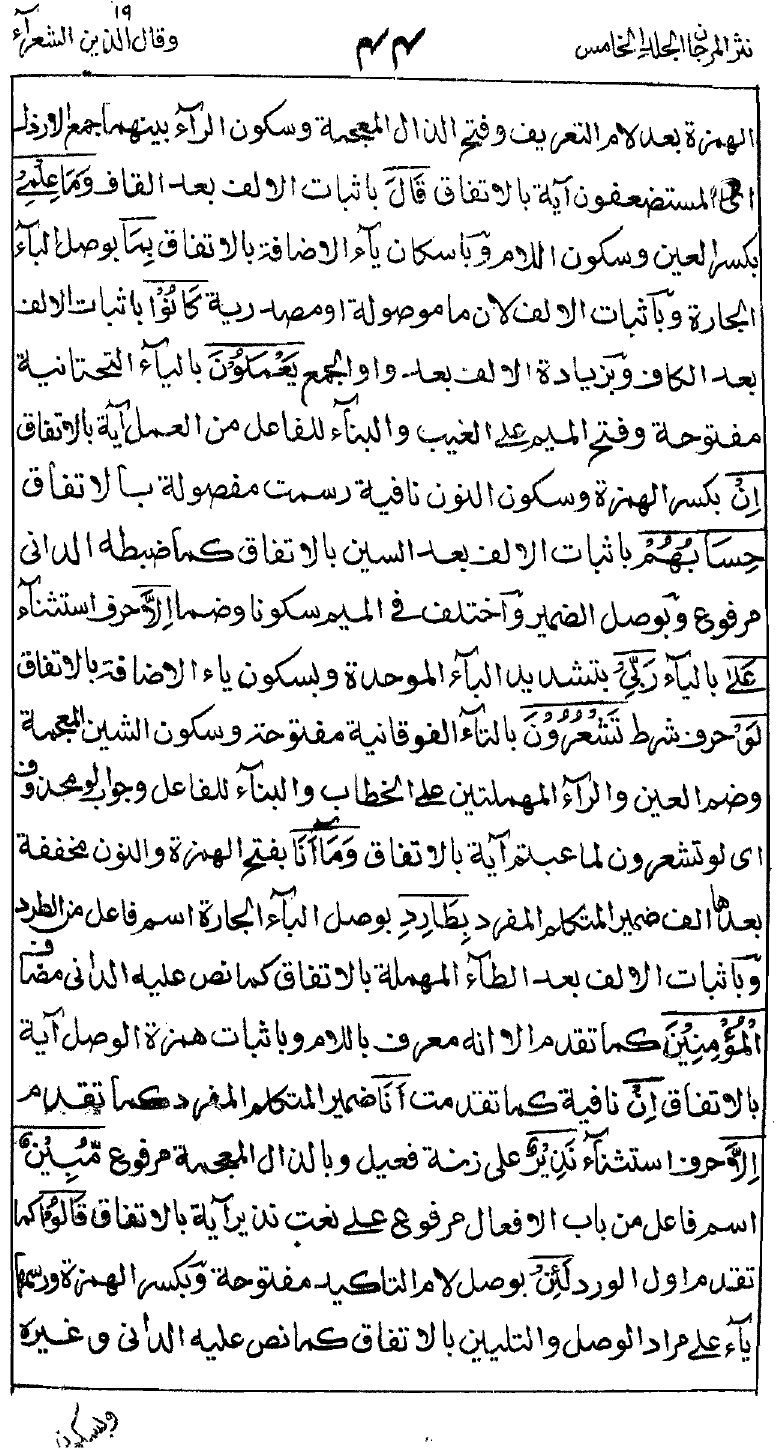 نثر المرجان الجلد الخامس
٤٤
وقال الذين ١٩ الشعرآء
الهمزة بعد لام التعريف وفتح الذال المعجمة وسكون الرآء بينهما جمع الارذل
اى المستضعفون آية بالاتفاق قَالَ باثبات الالف بعد القاف وَمَا عِلْمِىْ
بكسر العين وسكون اللام وبا سكان يآء الاضافة بالاتفاق بِمَا بوصل البآء
الجارة وباثبات الالف لان ما موصولة او مصدرية كَانُوْا باثبات الالف
بعد الكاف وبزيادة الالف بعد واو الجمع يَعْمَلُوْنَ باليآء التحتانية
مفتوحة وفتح الميم على الغيب والبنآء للفاعل من العمل آية بالاتفاق
اِنْ بكسر الهمزة وسكون النون نافية رسمت مفصولة بالاتفاق
حِسَابُهُمْ باثبات الالف بعد السين بالاتفاق كما ضبطه الدانى
مرفوع وبوصل الضمير واختلف فى الميم سكونا وضما اِلَّا حرف استثنآء
عَلٰى باليآء رَبِّىْ بتشديد البآء الموحدة وبسكون ياء الاضافة بالاتفاق
لَوْ حرف شرط تَشْعُرُوْنَ بالتآء الفوقانية مفتوحة وسكون الشين المعجمة
وضم العين والرآء المهملتين على الخطاب والبنآء للفاعل وجواب لو محذوف
اى لو تشعرون لما عبتم آية بالاتفاق وَمَا اَنَا بفتح الهمزة والنون مخففة
بعدها الف ضمير المتكلم المفرد بِطَارِدِ بوصل البآء الجارة اسم فاعل من الطرد
وباثبات الالف بعد الطآء المهملة بالاتفاق كما نص عليه الدانى مضاف
الْمُؤْمِنِيْنَ كما تقدم الا انه معرف باللام وباثبات همزة الوصل آية
بالاتفاق اِنْ نافية كما تقدمت اَنَا ضمير المتكلم المفرد كما تقدم
اِلَّا حرف استثنآء نَذِيْرٌ على زنة فعيل وبالذال المعجمة مرفوع مُّبِيْنٌ
اسم فاعل من باب الافعال مرفوع على نعت نذير آية بالاتفاق قَالُوْا كما
تقدم اول الورد لَئِنْ بوصل لام التاكيد مفتوحة وبكسر الهمزة ورسمها
يآء على مراد الوصل والتليين بالاتفاق كما نص عليه الدانى وغيره
وبسكون